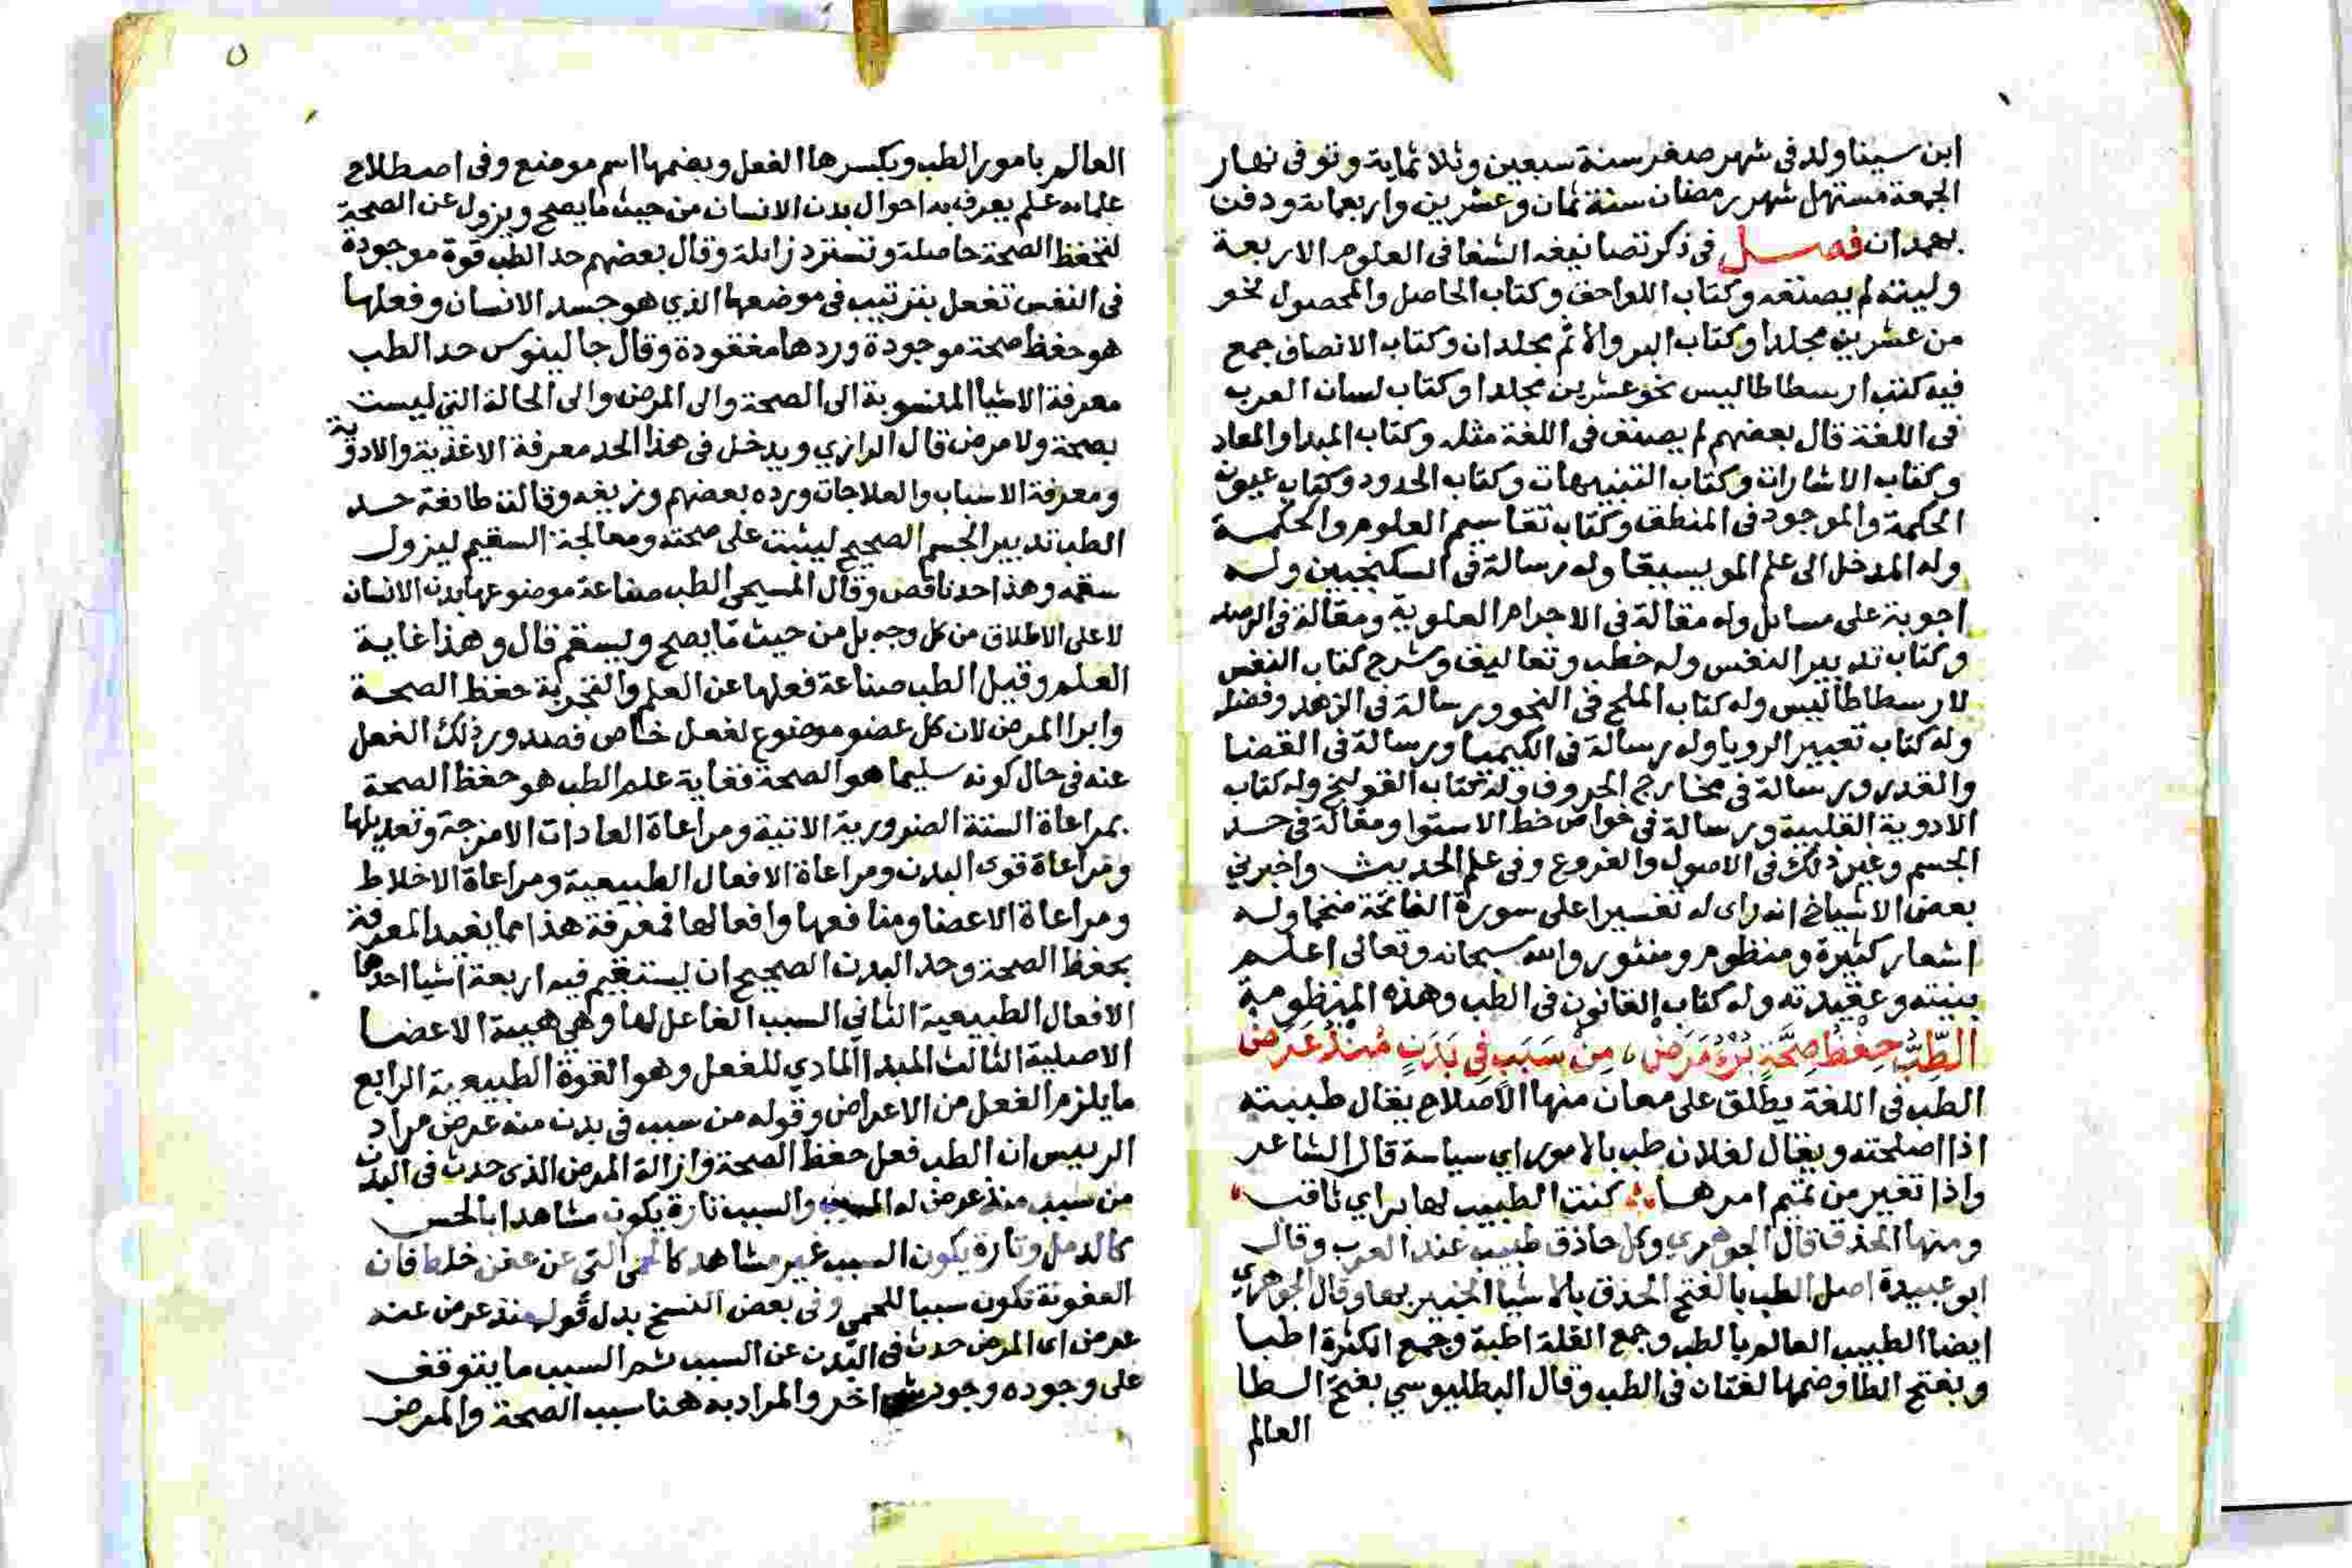 ابن سينا ولد فى شهر صفر سنة سبعين وثلاثماية وتوفى نهار
الجمعة مستهل شهر رمضان سنة ثمان وعشرين واربعماية ودفن
بهمدان فصل فى ذكر تصانيفه الشفا فى العلوم الاربعة
وليته لم يصنفه وكتاب اللواحق وكتاب الحاصل والمحصول نحو
من عشرين مجلدا وكتاب البر والاثم مجلدان وكتاب الانصاف جمع
فيه كتب ارسطاطاليس نحو عشرين مجلدا وكتاب لسان العرب
فى اللغة قال بعضهم لم يصنف فى اللغة مثله وكتاب المبدا والمعاد
وكتاب الاشارات وكتاب التنبيهات وكتاب الحدود وكتاب عيون
الحكمة والموجود فى المنطق وكتاب تقاسيم العلوم والحكمة
وله المدخل الى علم المويسيقا وله رسالة فى السكنجبين وله
اجوبة على مسائل وله مقالة فى الاجرام العلوية ومقالة فى الرصد
وكتاب تدبير النفس وله خطب وتعاليق وشرح كتاب النفس
لارسطاطاليس وله كتاب الملح فى النحو ورسالة فى الزهد وفضله
وله كتاب تعبير الرويا وله رسالة فى الكيميا ورسالة فى القضا
والقدر ورسالة فى مخارج الحروف وله كتاب القولنج وله كتاب
الادوية القلبية ورسالة فى خواص خط الاستوا ومقالة فى حد
الجسم وغير ذلك فى الاصول والفروع وفى علم الحديث واخبرني
بعض الاشياخ انه راى له تفسيرا على سورة الفاتحة ضخما وله
اشعار كثيرة ومنظوم ومنثور والله سبحانه وتعالى اعلم
بنيته وعقيدته وله كتاب القانون فى الطب وهذه المنظومة
الطِّبُّ حِفْظُ صِحَّةٍ بُرْءُ مَرَضْ، مِنْ سَبَبٍ فِى بَدَنٍ مُنْذُ عَرَضْ
الطب فى اللغة يطلق على معان منها الاصلاح يقال طببته
اذا اصلحته ويقال لفلان طب بالامور اي سياسة قال الشاعر
واذا تغير من تميم امرها كنت الطبيب لها براي ثاقب
ومنها الحذق قال الجوهري وكل حاذق طبيب عند العرب وقال
ابو عبيدة اصل الطب بالفتح الحذق بالاشيا الخبير بها وقال الجوهري
ايضا الطبيب العالم بالطب وجمع القلة اطبة وجمع الكثرة اطبا
وبفتح الطا وضمها لغتان فى الطب وقال البطليوسي بفتح الطا
العالم
٥
العالم بامور الطب وبكسرها الفعل وبضمها اسم موضع وفى اصطلاح
علمائه علم يعرف به احوال بدن الانسان من حيث ما يصح ويزول عن الصحة
لتحفظ الصحة حاصلة وتسترد زائلة وقال بعضهم حد الطب قوة موجودة
فى النفس تفعل بترتيب فى موضعها الذي هو جسد الانسان وفعلها
هو حفظ صحة موجودة وردها مفقودة وقال جالينوس حد الطب
معرفة الاشيا المنسوبة الى الصحة والى المرض والى الحالة التي ليست
بصحة ولا مرض قال الرازي ويدخل فى هذا الحد معرفة الاغذية والادوية
ومعرفة الاسباب والعلاجات ورده بعضهم وزيفه وقالت طائفة حد
الطب تدبير الجسم الصحيح ليثبت على صحته ومعالجة السقيم ليزول
سقمه وهذا حد ناقص وقال المسيحى الطب صناعة موضوعها بدن الانسان
لا على الاطلاق من كل وجه بل من حيث ما يصح ويسقم قال وهذا غاية
العلم وقيل الطب صناعة فعلها عن العلم والتجربة حفظ الصحة
وابرا المرض لان كل عضو موضوع لفعل خاص فصدور ذلك الفعل
عنه فى حال كونه سليما هو الصحة فغاية علم الطب هو حفظ الصحة
بمراعاة الستة الضرورية الاتية ومراعاة العادات الامزجة وتعديلها
ومراعاة قوى البدن ومراعاة الافعال الطبيعية ومراعاة الاخلاط
ومراعاة الاعضا ومنافعها وافعالها فمعرفة هذا مما يفيد المعرفة
بحفظ الصحة وحد البدن الصحيح ان يستقيم فيه اربعة اشيا احدها
الافعال الطبيعية الثاني السبب الفاعل لها وهي هيئة الاعضا
الاصلية الثالث المبدا المادي للفعل وهو القوة الطبيعية الرابع
ما يلزم الفعل من الاعراض وقوله من سبب فى بدن منه عرض مراد
الرييس ان الطب فعل حفظ الصحة وازالة المرض الذى حدث فى البدن
من سبب منذ عرض له والسبب تارة يكون مشاهدا بالحس
كالدمل وتارة يكون السبب غير مشاهد كالحمى التى عن عفن خلط فان
العفونة تكون سببا للحمى وفى بعض النسخ بدل قوله منذ عرض عنه
عرض اى المرض حدث فى البدن عن السبب ثم السبب ما يتوقف
على وجوده وجود اخر والمراد به هنا سبب الصحة والمرض